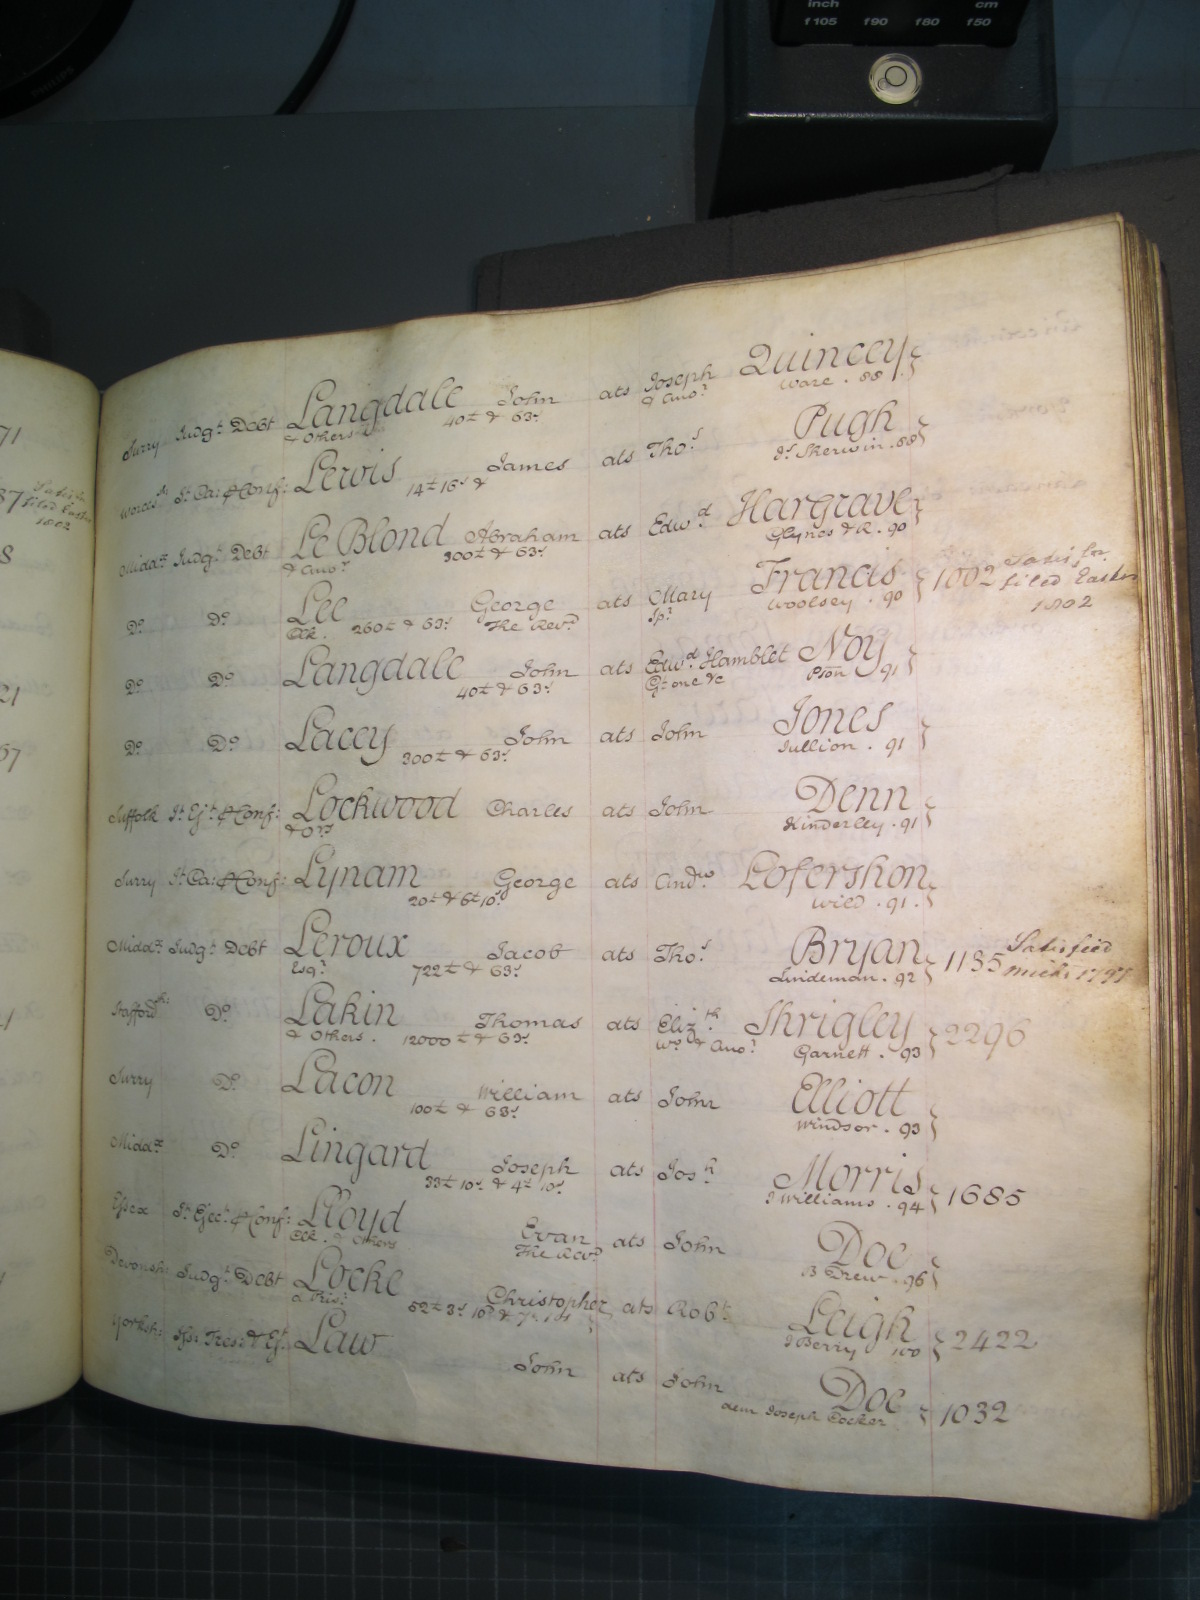 inch cm
f105 f90 f80 f50
PHILIPS
71
Surry Judgt. Debt Langdale John ats Joseph Quincey
& Others 40£ & 63s & Anor. Ware . 88
Worcestr. It. Ca: & Conf: Lewis James ats Thos. Pugh
14£ 16s & Js. Sherwin . 88
87 Satisfn. filed Easter 1802
Middx. Judgt. Debt Le Blond Abraham ats Edwd. Hargrave
& Anor. 300£ & 63s Glynes & R. 90
Do. Do. Lee George ats Mary Francis 1002 Satisfn. filed Easter 1802
Clk. 260£ & 63s The Revd. Spr. Woolsey . 90
Do. Do. Langdale John ats Edwd. Hamblet Noy
40£ & 63s Gt. one &c Pson 91
21
Do. Do. Lacey John ats John Jones
300£ & 63s Jullion . 91
57
Suffolk It. Ejt. & Conf: Lockwood Charles ats John Denn
& Ors. Kinderley . 91
Surry It. Ca: & Conf: Lynam George ats Andw. Lofershon
20£ & 6£ 10s Wild . 91 .
Middx. Judgt. Debt Leroux Jacob ats Thos. Bryan 1185 Satisfied Michs. 1797
Esqr. 722£ & 63s Lindeman . 92
Staffordsh: Do. Lakin Thomas ats Elizth. Shrigley 2296
& Others . 12000£ & 63s Wo. & Anor. Garnett . 93
Surry Do. Lacon William ats John Elliott
100£ & 63s Windsor . 93
Middx. Do. Lingard Joseph ats Josh. Morris 1685
33£ 10s & 4£ 10s J Williams . 94
Essex It. Eject. & Conf: Lloyd Evan ats John Doe
Clk . & Others The Revd. B Drew . 96
Devonsh: Judgt. Debt Locke Christopher ats Robt. Leigh 2422
a Prisr. 52£ 3s 10d & 7£ 14 J Berry 100
Yorksh: Iss: Tres: & Ejt. Law John ats John Doe 1032
dem Joseph Cocker